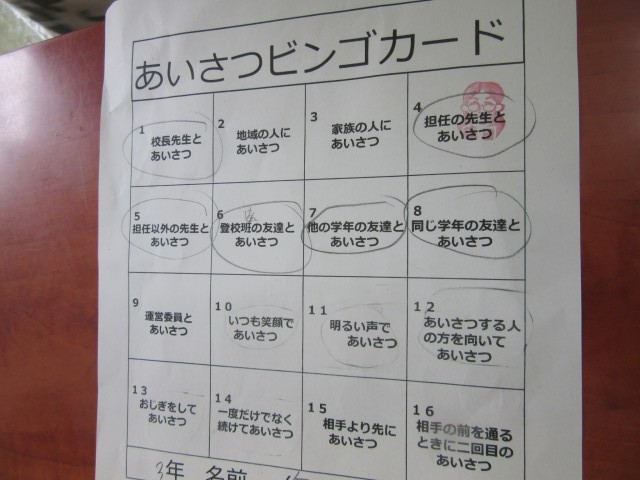 あいさつビンゴカード
1
校長先生と
あいさつ
2
地域の人に
あいさつ
3
家族の人に
あいさつ
4
担任の先生と
あいさつ
5
担任以外の先生と
あいさつ
6
登校班の友達と
あいさつ
7
他の学年の友達と
あいさつ
8
同じ学年の友達と
あいさつ
9
運営委員と
あいさつ
10
いつも笑顔で
あいさつ
11
明るい声で
あいさつ
12
あいさつする人
の方を向いて
あいさつ
13
おじぎをして
あいさつ
14
一度だけでなく
続けてあいさつ
15
相手より先に
あいさつ
16
相手の前を通る
ときに二回目の
あいさつ
3年 名前